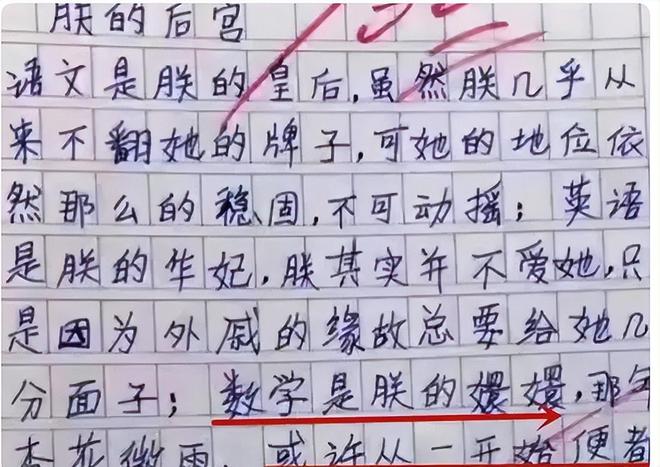 朕的后宫
语文是朕的皇后,虽然朕几乎从
来不翻她的牌子,可她的地位依
然那么的稳固,不可动摇;英语
是朕的华妃,朕其实并不爱她,只
是因为外戚的缘故总要给她几
分面子;数学是朕的嬛嬛,那年
杏花微雨,或许从一开始便